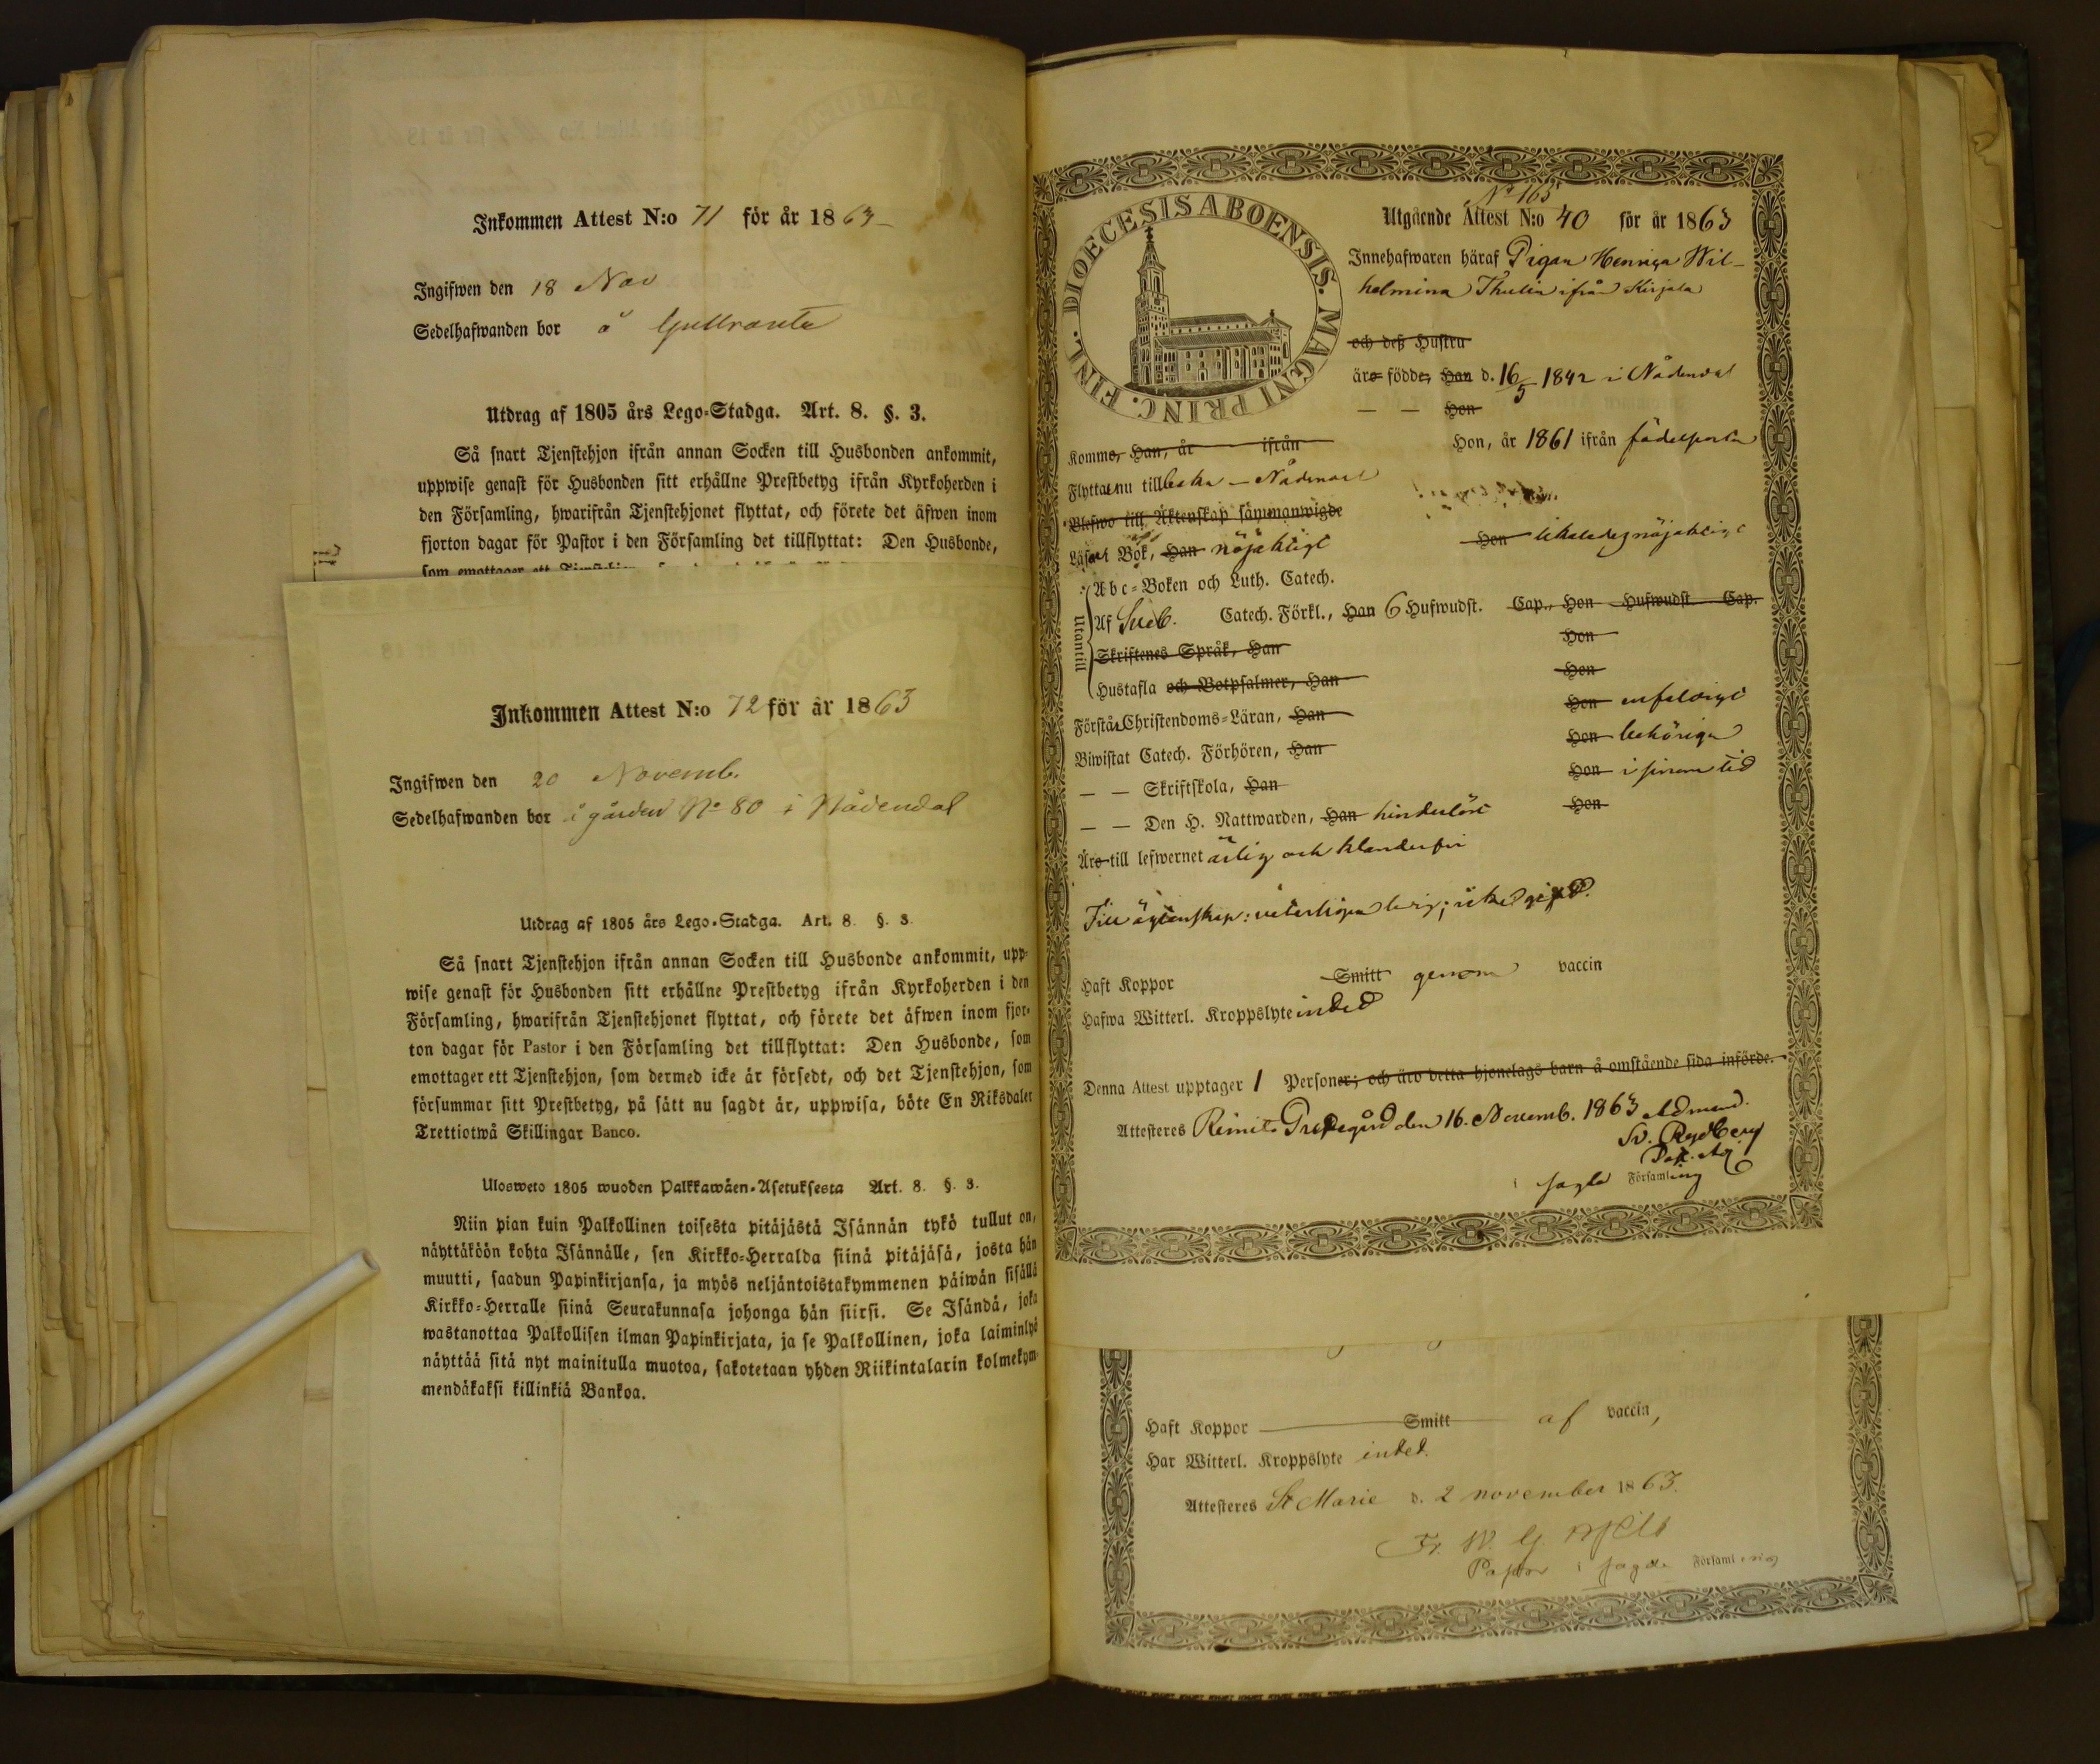 Inkommen Attest N:o 71 för år 1863
Ingifwen den 18 Nov
Sedelhafwanden bor å Gullranta
Utdrag af 1805 års Lego-Stadga. Art. 8. §. 3.
Så snart Tjenstehjon ifrån annan Socken till Husbonden ankommit,
uppwise genast för Husbonden sitt erhållne Prestbetyg ifrån Kyrkoherden i
den Församling, hwarifrån Tjenstehjonet flyttat, och förete det äfwen inom
fjorton dagar för Pastor i den Församling det tillflyttat: Den Husbonde,
som emottager ett
Inkommen Attest N:o 72 för år 1863
Ingifwen den 20 Novemb.
Sedelhafwanden bor i gården No 80 i Nådendal
Utdrag af 1805 års Lego-Stadga. Art. 8. §. 3.
Så snart Tjenstehjon ifrån annan Socken till Husbonde ankommit, upp-
wise genast för Husbonden sitt erhållne Prestbetyg ifrån Kyrkoherden i den
Församling, hwarifrån Tjenstehjonet flyttat, och förete det äfwen inom fjor-
ton dagar för Pastor i den Församling det tillflyttat: Den Husbonde, som
emottager ett Tjenstehjon, som dermed icke är försedt, och det Tjenstehjon, som
försummar sitt Prestbetyg, på sätt nu sagdt är, uppwisa, böte En Riksdaler
Trettiotwå Skillingar Banco.
Ulosweto 1805 wuoden Palkkawäen-Asetuksesta Art. 8. §. 3.
Niin pian kuin Palkollinen toisesta pitäjästä Isännän tykö tullut on,
näyttäköön kohta Isännälle, sen Kirkko-Herralda siinä pitäjäsä, josta hän
muutti, saadun Papinkirjansa, ja myös neljäntoistakymmenen päiwän sisällä
Kirkko-Herralle siinä Seurakunnasa johonga hän siirsi. Se Isändä, joka
wastanottaa Palkollisen ilman Papinkirjata, ja se Palkollinen, joka laiminlyö
näyttää sitä nyt mainitulla muotoa, sakotetaan yhden Riikintalarin kolmekym-
mendäkaksi killinkiä Bankoa.
DIOECESIS ABOENSIS. MAGNI PRINC. FINL.
No 163
Utgående Attest N:o 40 för år 1863
Innehafwaren häraf Pigan Henrica Wil-
helmina Thulin ifrån Kirjala
och deß Hustru
äro födde, Han d. 16/5 1842 i Nådendal
— — Hon
Komme, Han, år ifrån Hon, år 1861 ifrån födelseorten
Flyttar nu till Nådendal
Blefwo till Äktenskap sammanwigde
Läsa i Bok, Han nöjaktigt Hon likaledes nöjaktigt
Utantill
Abc-Boken och Luth. Catech.
Af Sveb. Catech. Förkl., Han 6 Hufwudst. Cap., Hon Hufwudst. Cap.
Skriftenes Språk, Han Hon
Hustafla och Botpsalmer, Han Hon
Förstår Christendoms-Läran, Han Hon enfaldigt
Biwistat Catech. Förhören, Han Hon behörigen
— — Skriftskola, Han Hon i sinom tid
— — Den H. Nattwarden, Han hinderlöst Hon
Äro till lefwernet ärlig och klanderfri
Till ägtenskap: veterligen ledig; icke gift.
Haft Koppor Smitt genom vaccin
Hafwa Witterl. Kroppslyte intet
Denna Attest upptager 1 Personer; och äro detta hjonelags barn å omstående sida införde.
Attesteres Rimito Prestgård den 16. Novemb. 1863
Sv. Rydberg
i sagde Församling
Haft Koppor Smitt af vaccin,
Har Witterl. Kroppslyte intet.
Attesteres St Marie d. 2 november 1863.
Pastor i sagde Församling